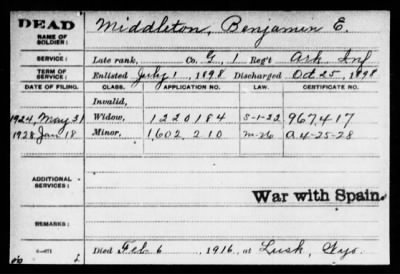 DEAD
NAME OF SOLDIER: Middleton, Benjamin E.
SERVICE: Late rank, Co. G, 1 Reg't Ark Inf
TERM OF SERVICE: Enlisted July 1, 1898 Discharged Oct 25, 1898
DATE OF FILING. CLASS. APPLICATION NO. LAW. CERTIFICATE NO.
Invalid,
1924, May 31 Widow, 1220184 5-1-22 967417
1928 Jan 18 Minor, 1,602,210 m-26 a 4-25-28
ADDITIONAL SERVICES:
War with Spain.
REMARKS:
Died Feb 6, 1916, at Lusk, Wyo.